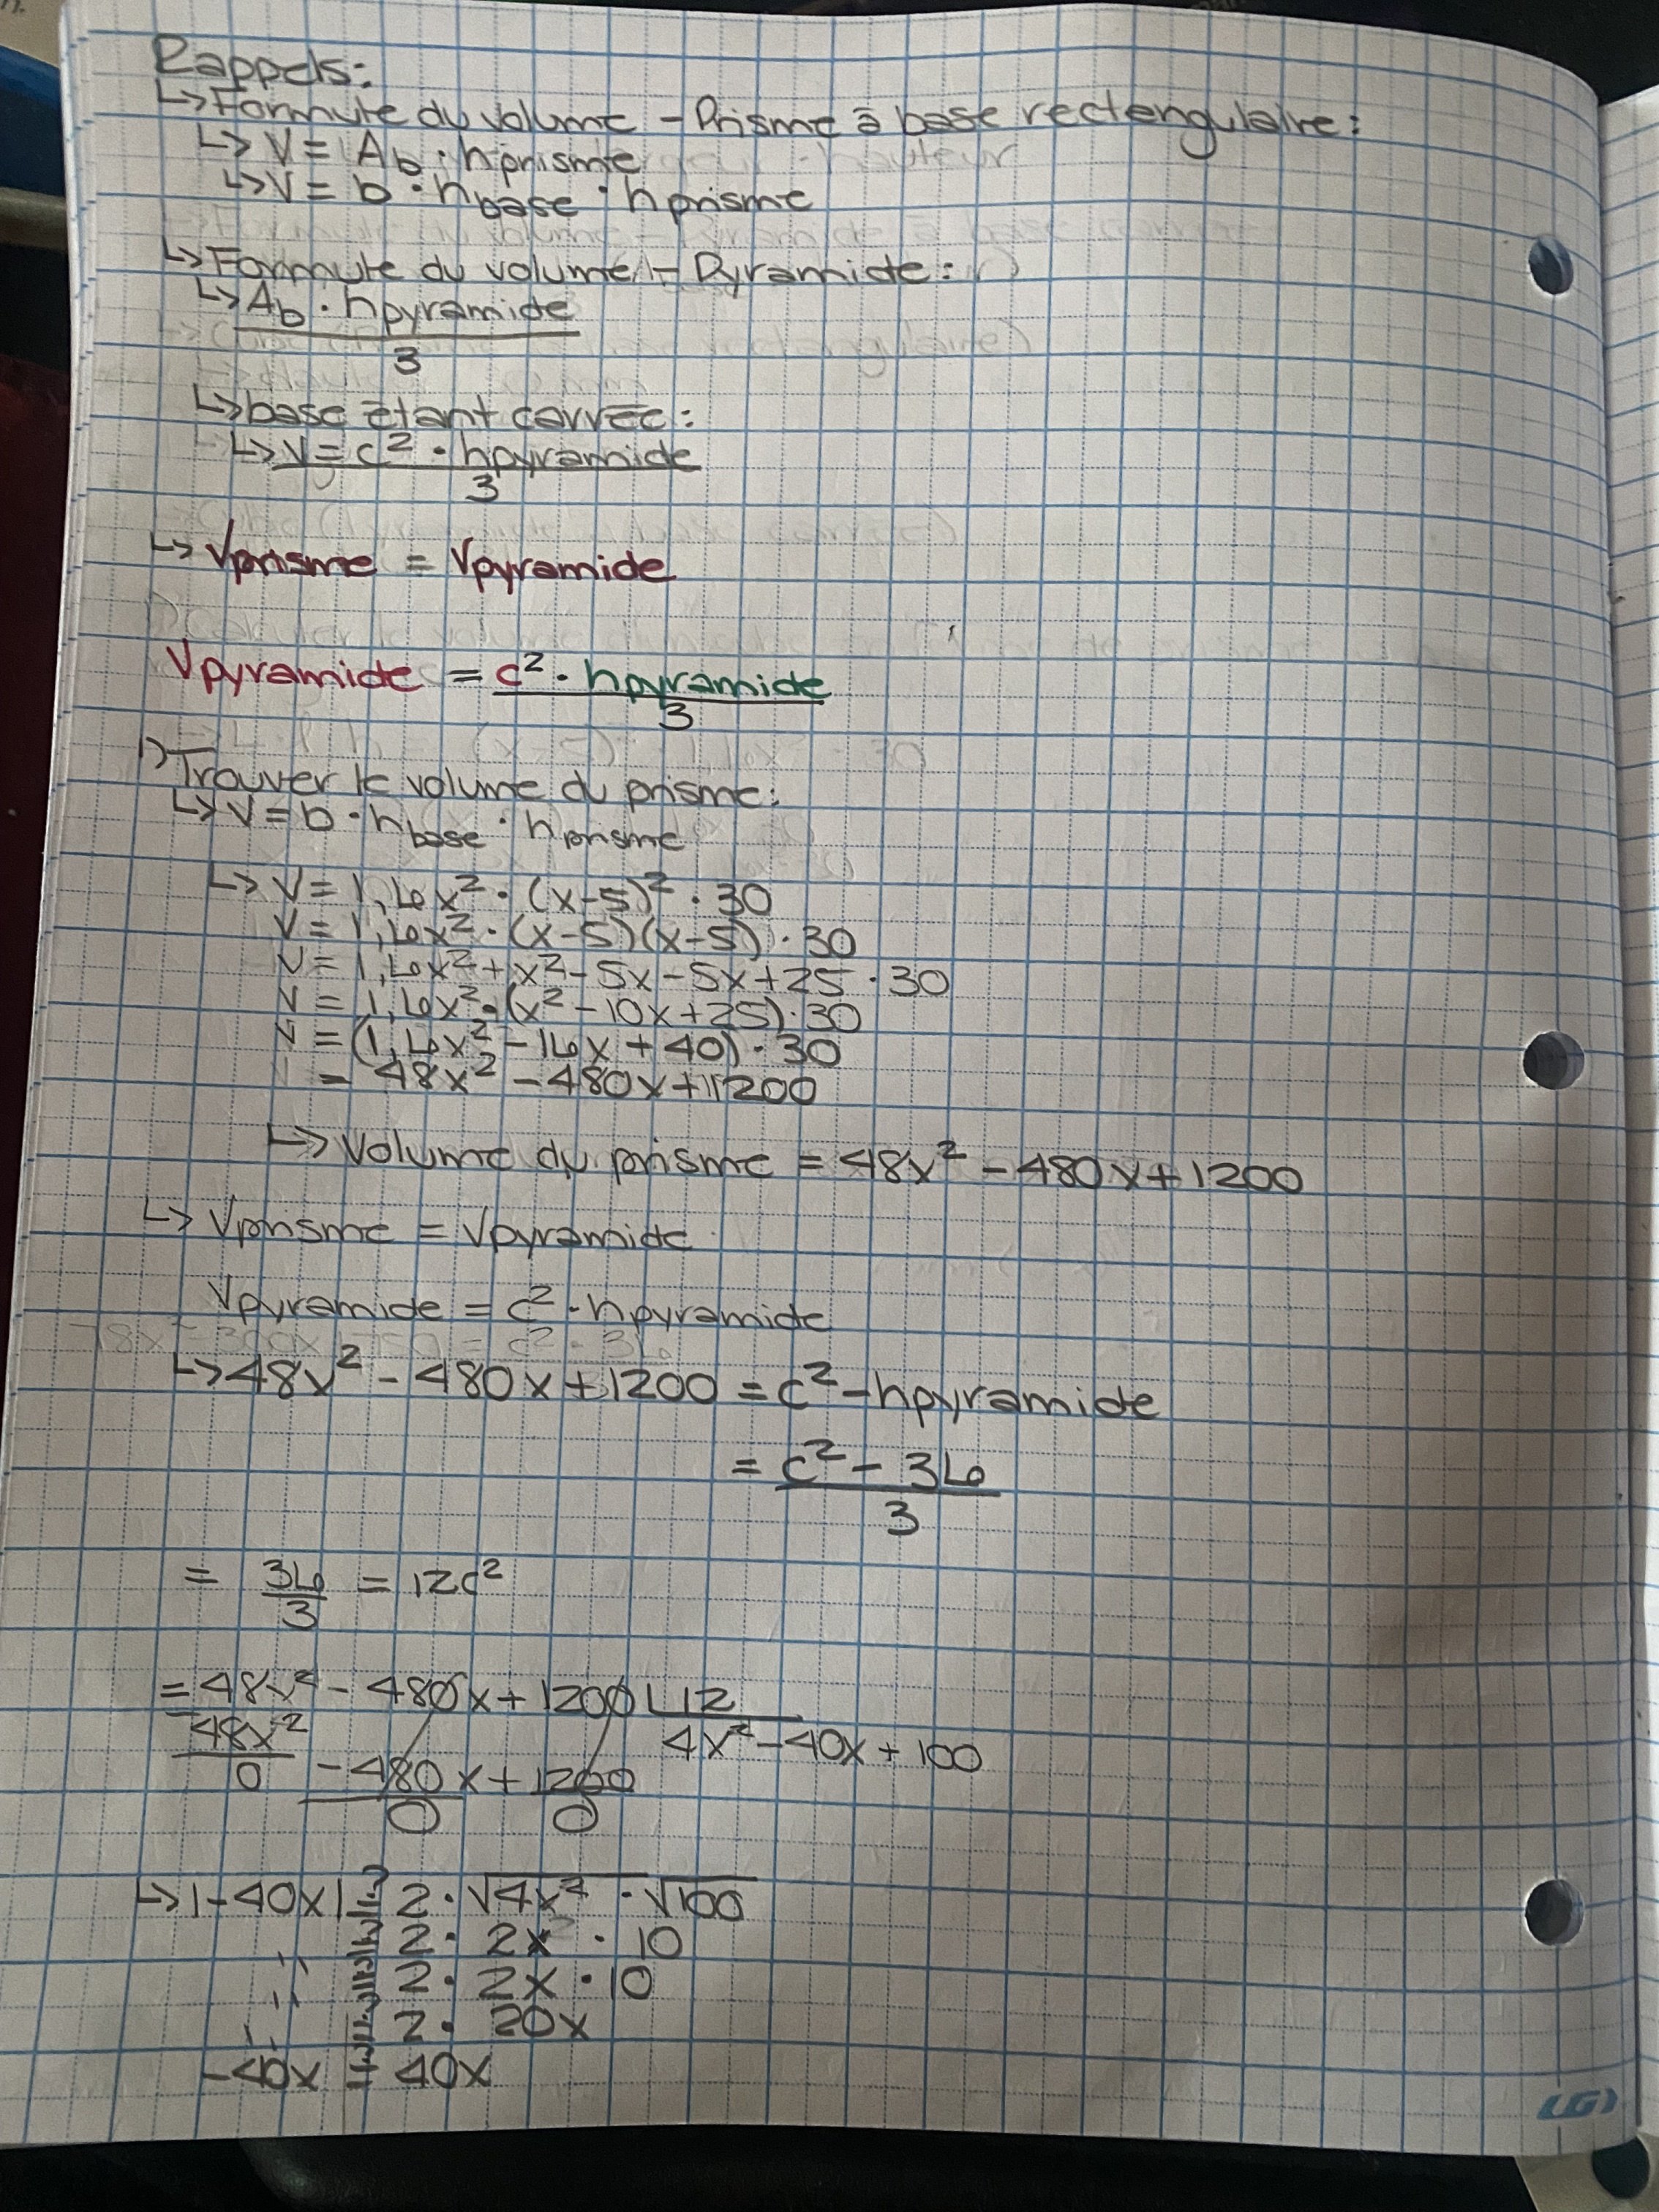 Rappels:
↳ Formule du volume - Prisme à base rectengulaire:
↳ V = Ab · hprisme
↳ V = b · hbase · hprisme
↳ Formule du volume - Pyramide:
↳ Ab · hpyramide
3
↳ base étant carrée:
↳ V = c² · hpyramide
3
↳ Vprisme = Vpyramide
Vpyramide = c² · hpyramide
3
1) Trouver le volume du prisme:
↳ V = b · hbase · hprisme
↳ V = 1,6x² · (x-5)² · 30
V = 1,6x² · (x-5)(x-5) · 30
V = 1,6x² + x² - 5x - 5x + 25 · 30
V = 1,6x² · (x² - 10x + 25) · 30
V = (1,6x² - 16x + 40) · 30
= 48x² - 480x + 1200
↳ Volume du prisme = 48x² - 480x + 1200
↳ Vprisme = Vpyramide
Vpyramide = c² · hpyramide
↳ 48x² - 480x + 1200 = c² - hpyramide
= c² - 36
3
= 36 = 12c²
3
= 48x² - 480x + 1200 12
48x² 4x² - 40x + 100
0 - 480x + 1200
0 0
↳ |-40x| 2 · √4x² · √100
2 · 2x · 10
2 · 2x · 10
2 · 20x
-40x 40x
(G)